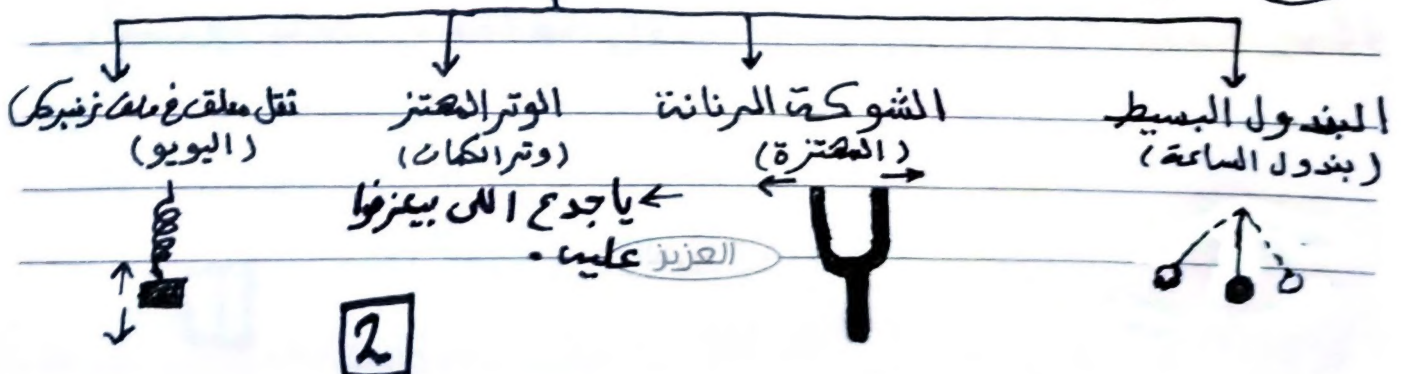 البندول البسيط
(بندول الساعة)
الشوكة الرنانة
(المهتزة)
الوتر المهتز
(وتر الكمان)
← ياجدع اللى بيعزفوا
عليه .
ثقل معلق في ملف زنبركى
(اليويو)
العزيز
2